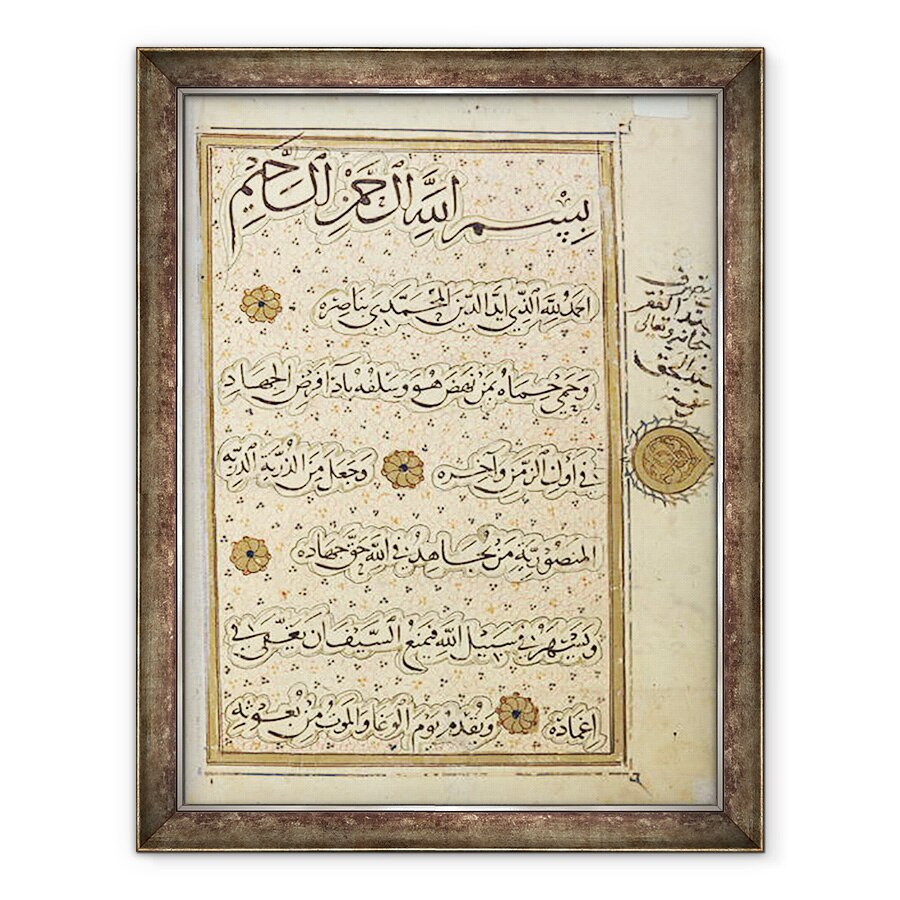 بسم الله الرحمن الرحيم
الحمد لله الذي أيد الدين المحمدي بناصره
وحمى حماه بمن نهض هو وسلفه بأداء فرض الجهاد
في أول الزمن وآخره وجعل من الذرية الذرية
المنصورية من يجاهد في الله حق جهاده
ويسهر في سبيل الله فيمنع السيف ان يغفى في
اغماده ويقدم يوم الوغا والموت من بعوثه